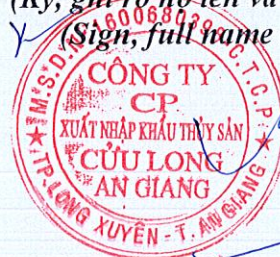 (Ký, ghi rõ họ tên và
(Sign, full name
M.S.D.N: 1600680398-C.T.C.P
CÔNG TY
CP
XUẤT NHẬP KHẨU THỦY SẢN
CỬU LONG
AN GIANG
TP. LONG XUYÊN - T. AN GIANG